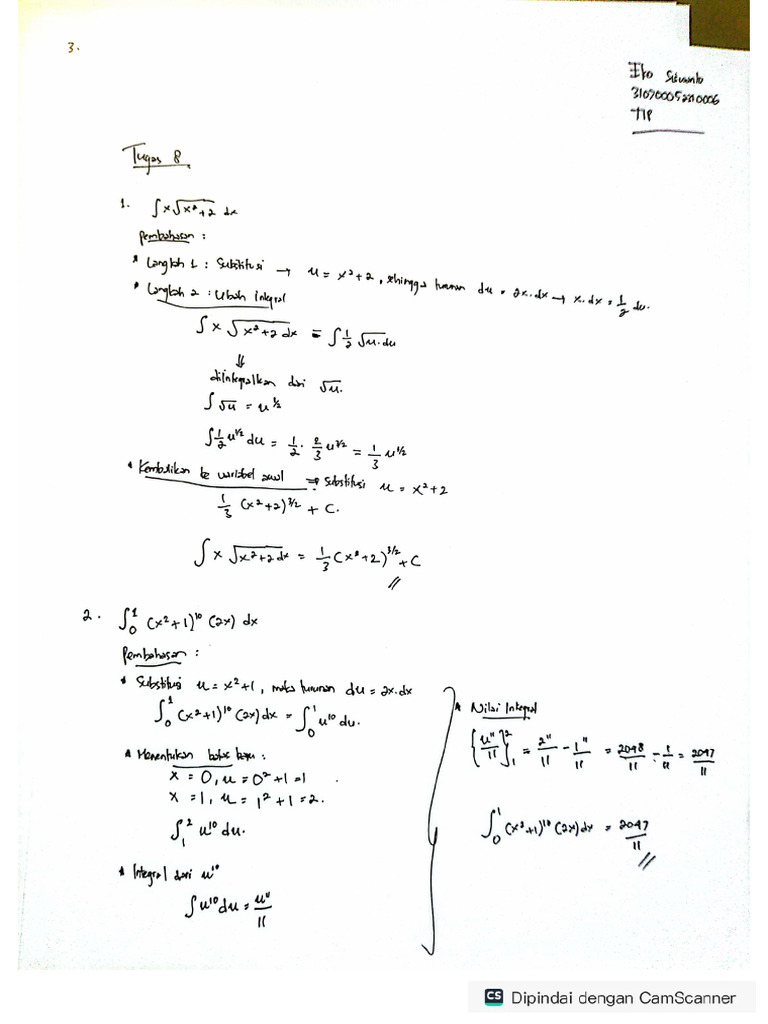 3.
Eko Siswanto
TIP
Tugas 8.
1. ∫ x √x²+2 dx
Pembahasan :
* Langkah 1 : Substitusi → u = x² + 2, sehingga turunan du = 2x.dx → x.dx = 1/2 du.
* Langkah 2 : Ubah Integral
∫ x √x²+2 dx = ∫ 1/2 √u. du
⇓
diintegralkan dari √u.
∫ √u = u^1/2
∫ 1/2 u^1/2 du = 1/2 . 2/3 u^3/2 = 1/3 u^1/2
* Kembalikan ke variabel awal ⇒ substitusi u = x² + 2
1/3 (x²+2)^3/2 + C.
∫ x √x²+2 dx = 1/3 (x²+2)^3/2 + C
2. ∫₀¹ (x²+1)¹⁰ (2x) dx
Pembahasan :
* Substitusi u = x²+1, maka turunan du = 2x.dx
∫₀¹ (x²+1)¹⁰ (2x) dx = ∫₀¹ u¹⁰ du.
* Menentukan batas baru :
x = 0, u = 0² + 1 = 1
x = 1, u = 1² + 1 = 2.
∫₁² u¹⁰ du.
* Integral dari u¹⁰
∫ u¹⁰ du = u¹¹/11
* Nilai Integral
[u¹¹/11]₁² = 2¹¹/11 - 1¹¹/11 = 2048/11 - 1/11 = 2047/11
∫₀¹ (x²+1)¹⁰ (2x) dx = 2047/11
CS Dipindai dengan CamScanner